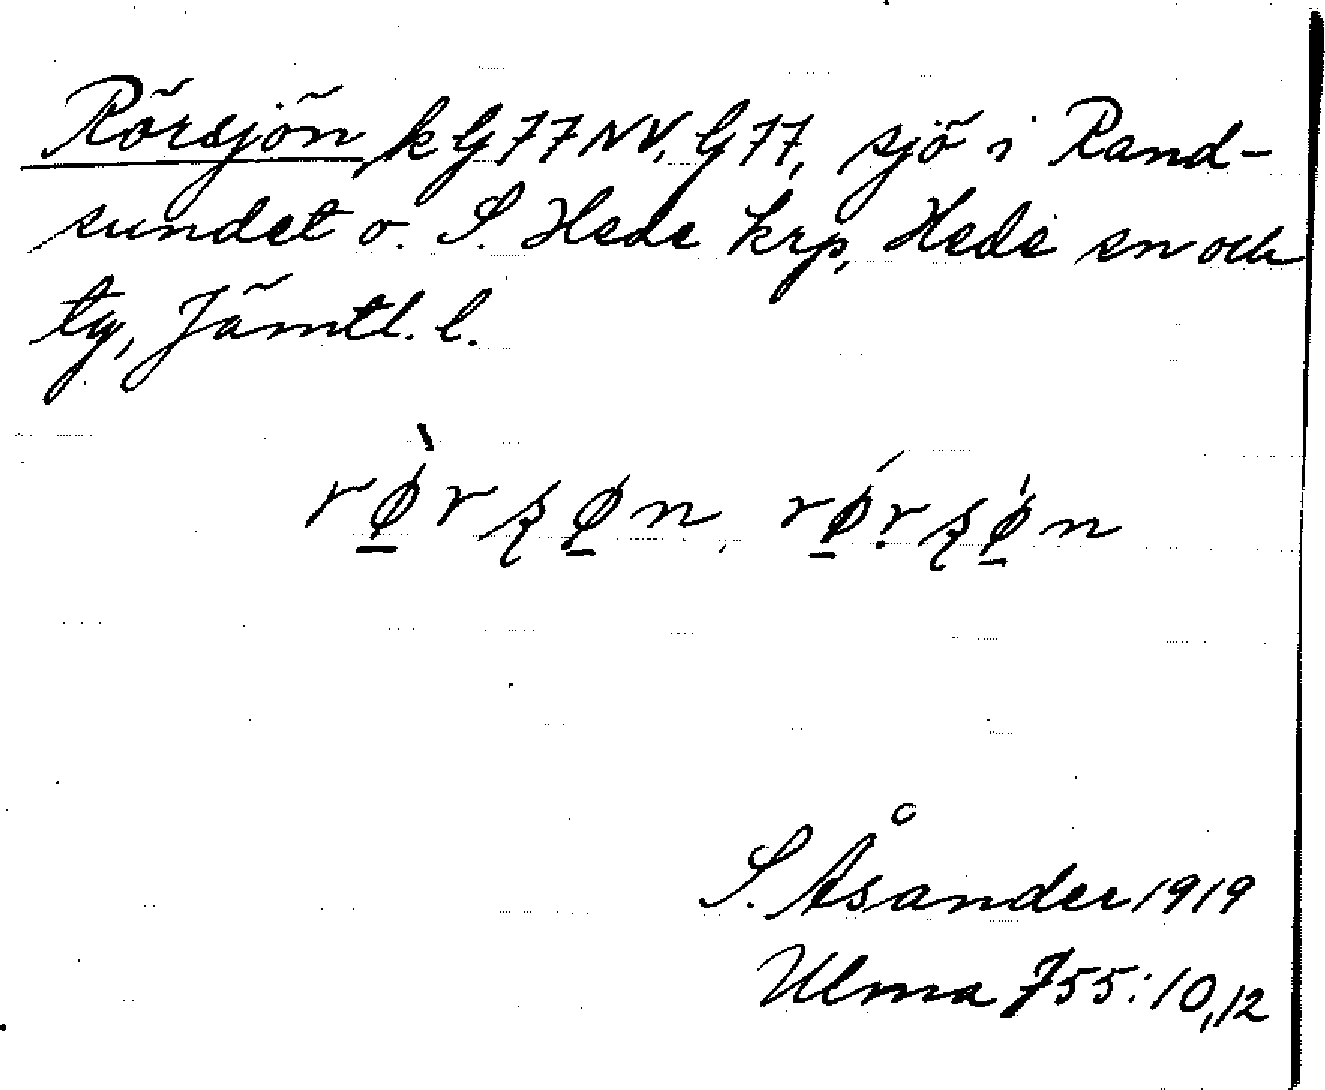 Rörsjön, k G 77 NV, G 77, sjö i Rand-
sundet o. S. Hede krp, Hede sn och
tg, Jämtl. l.
rø̠̀rʂø̠n, rǿ̠rʂø̠̍n
S. Åsander 1919
Ulma 755:10,12